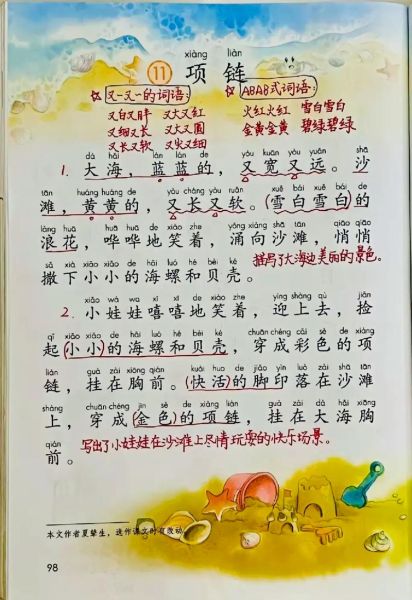 xiàng liàn
11 项链
☆又一又一的词语:
又白又胖 又大又红
又细又长 又大又圆
又长又软 又尖又细
☆ABAB式词语:
火红火红 雪白雪白
金黄金黄 碧绿碧绿
dà hǎi lán lán de yòu kuān yòu yuǎn shā
1. 大海，蓝蓝的，又宽又远。沙
tān huáng huáng de yòu cháng yòu ruǎn xuě bái xuě bái de
滩，黄黄的，又长又软。(雪白雪白)的
làng huā huā huā de xiào zhe yǒng xiàng shā tān qiāo qiāo
浪花，哗哗地笑着，涌向沙滩，悄悄
描写了大海边美丽的景色。
sǎ xià xiǎo xiǎo de hǎi luó hé bèi ké
撒下小小的海螺和贝壳。
xiǎo wá wa xī xī de xiào zhe yíng shàng qù jiǎn
2. 小娃娃嘻嘻地笑着，迎上去，捡
qǐ xiǎo xiǎo de hǎi luó hé bèi ké chuān chéng cǎi sè de xiàng
起(小小)的海螺和贝壳，穿成彩色的项
liàn guà zài xiōng qián kuài huo de jiǎo yìn luò zài shā tān
链，挂在胸前。(快活)的脚印落在沙滩
shàng chuān chéng jīn sè de xiàng liàn guà zài dà hǎi xiōng
上，穿成(金色)的项链，挂在大海胸
qián
前。写出了小娃娃在沙滩上尽情玩耍的快乐场景。
本文作者夏辇生，选作课文时有改动。
98